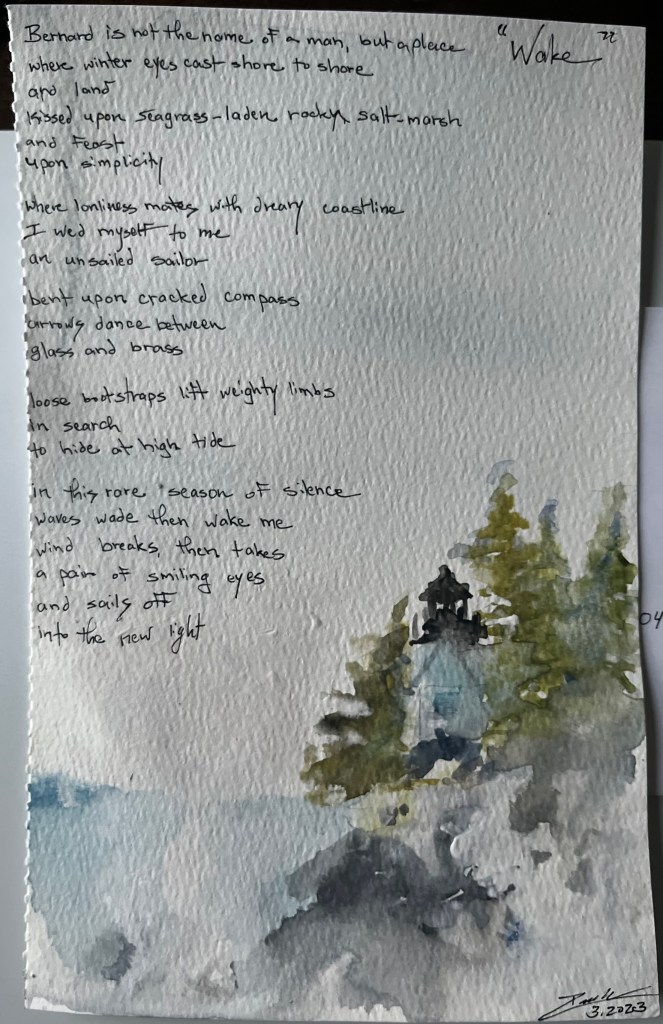 "Wake"
Bernard is not the name of a man, but a place
where winter eyes cast shore to shore
and land
kissed upon seagrass-laden rocky salt-marsh
and Feast
upon simplicity
where lonliness mates with dreary coastline
I wed myself to me
an unsailed sailor
bent upon cracked compass
arrows dance between
glass and brass
loose bootstraps lift weighty limbs
in search
to hide at high tide
in this rare season of silence
waves wade then wake me
wind breaks, then takes
a pair of smiling eyes
and sails off
into the new light
04
3.2023